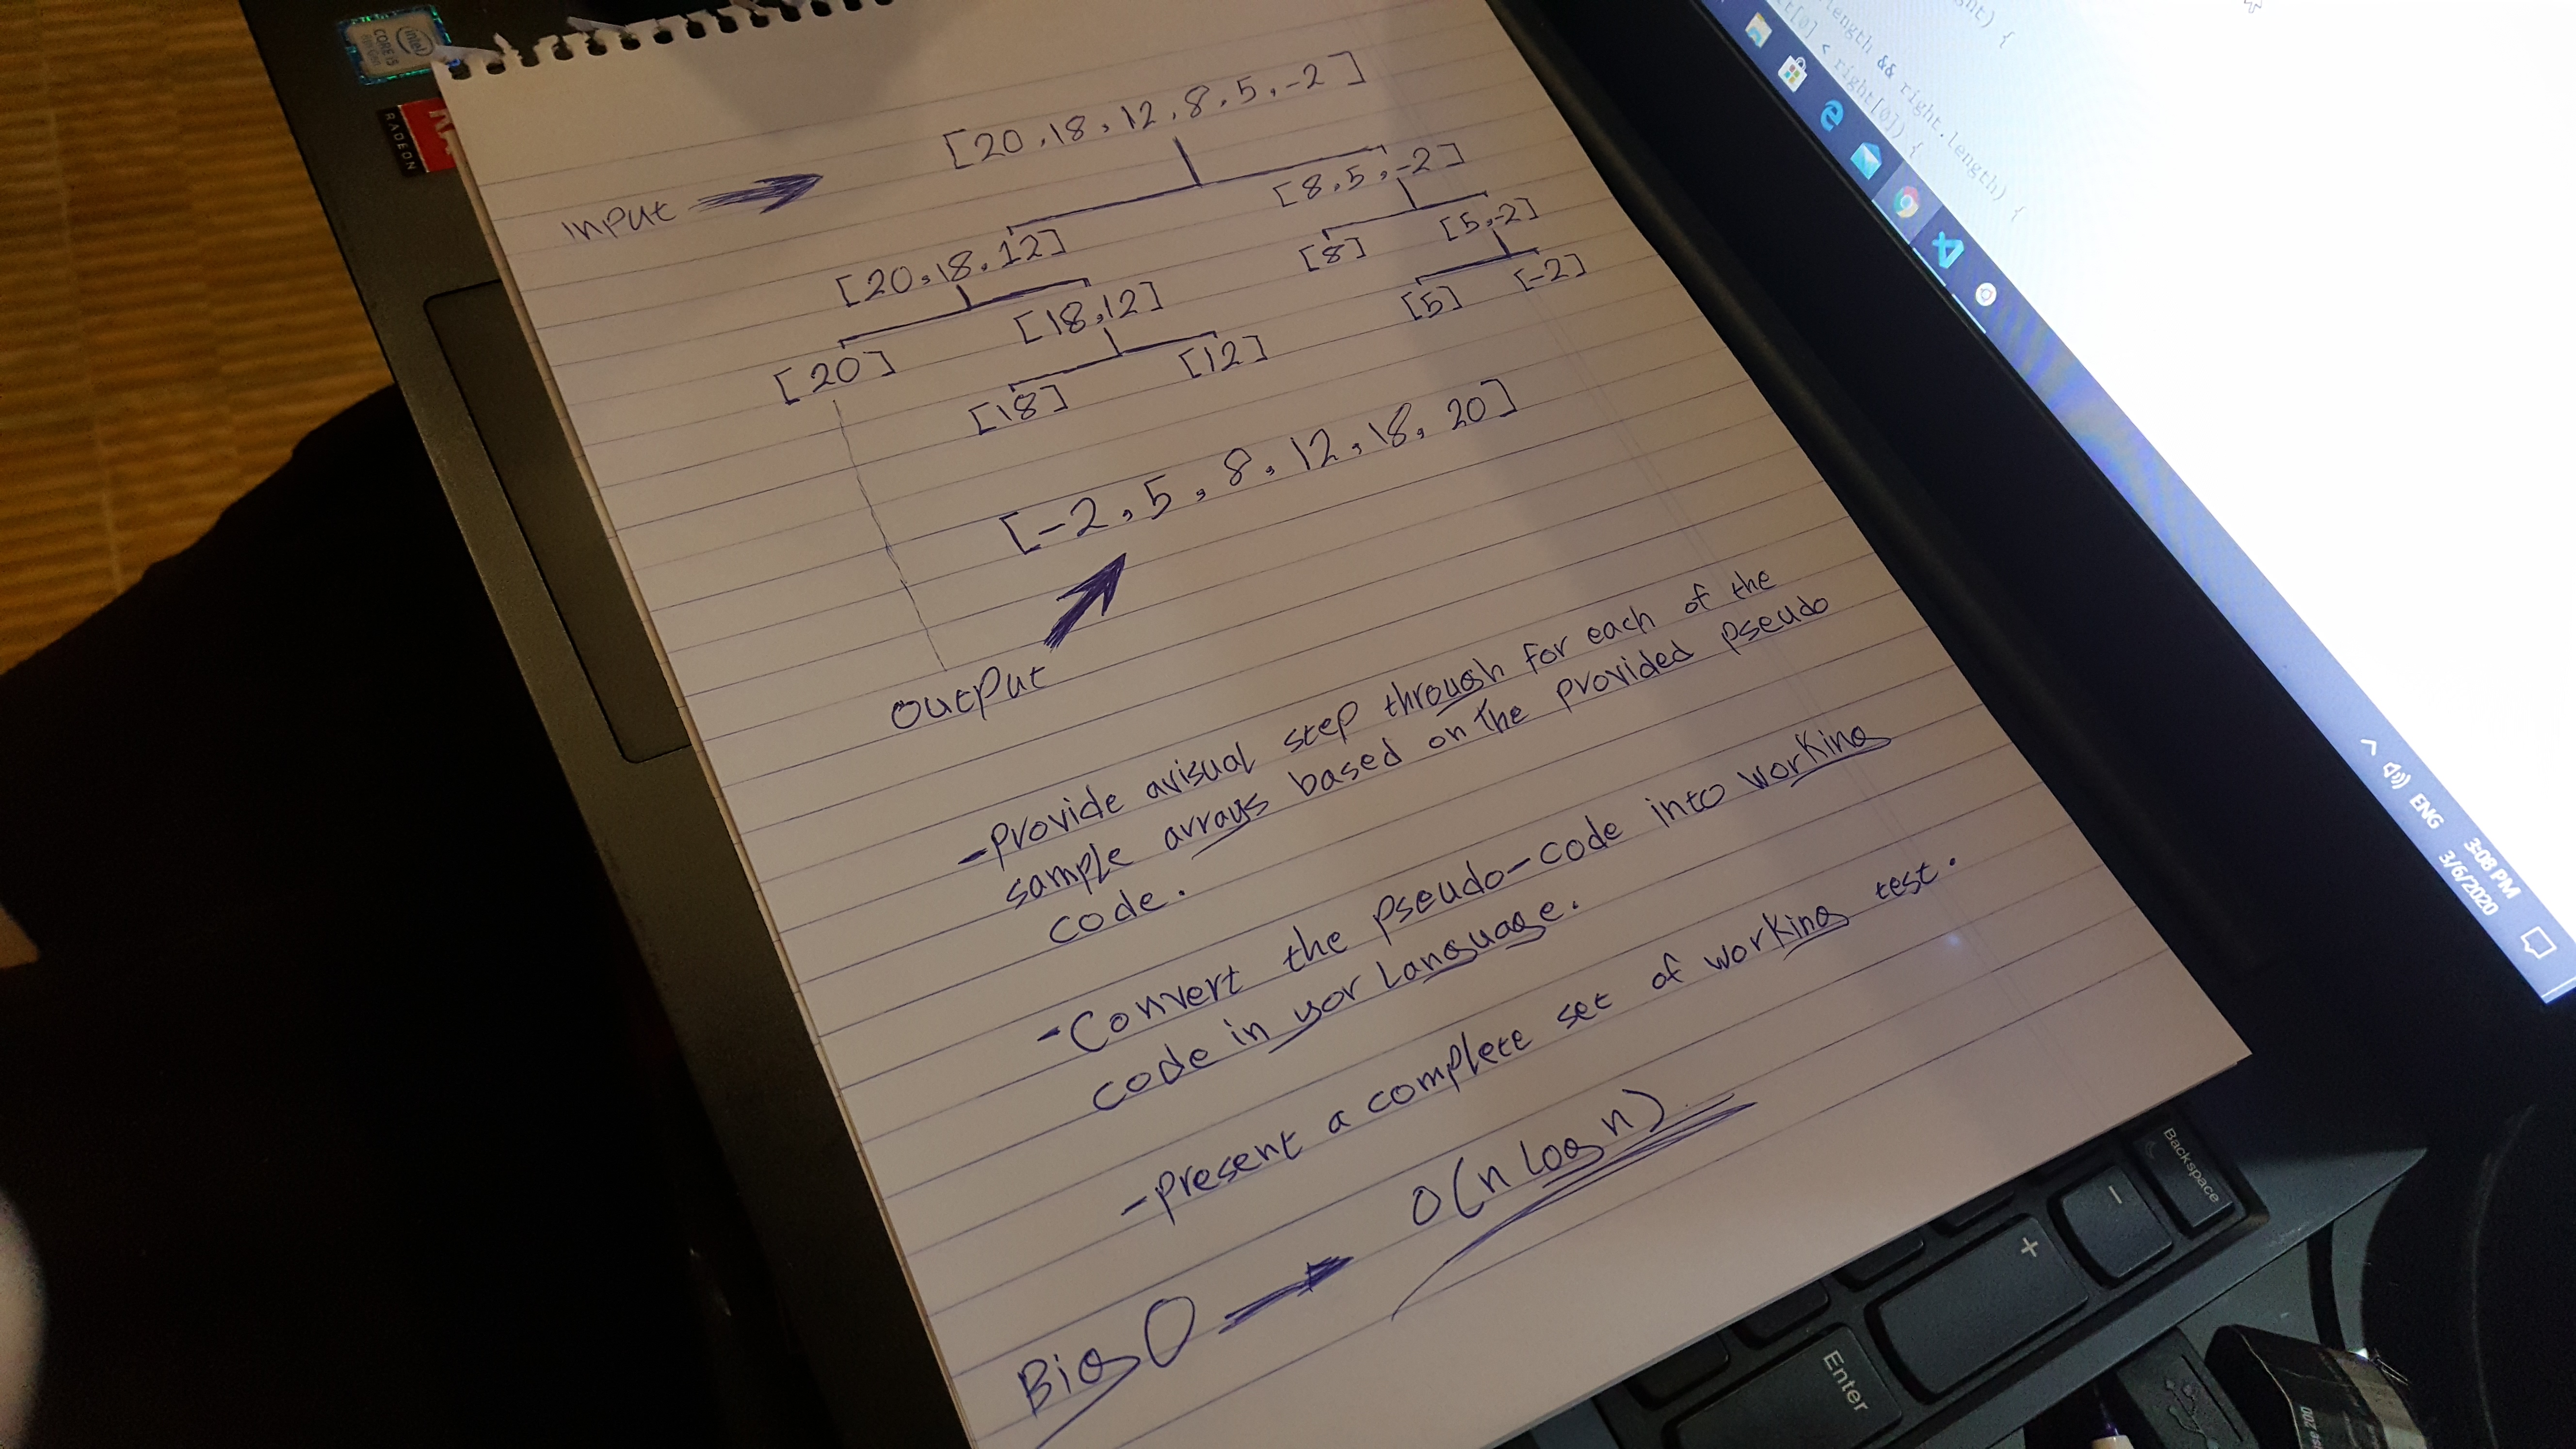 [20,18,12,8,5,-2]
INPUT
[8,5,-2]
[20,18,12]
[8] [5,-2]
[18,12]
[5] [-2]
[20]
[18] [12]
[-2,5,8,12,18,20]
OUTPUT
-Provide a visual step through for each of the
sample arrays based on the provided pseudo
code.
-Convert the pseudo-code into working
code in yor Language.
-Present a complete set of working test.
Big O
O(n Log n)
intel
CORE i5
RADEON
length && right.length) {
< right[0]) {
length) {
ENG
3:08 PM
3/6/2020
Backspace
-
+
Enter